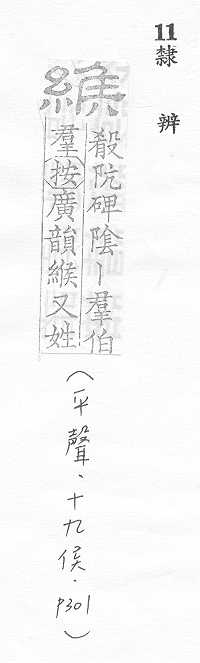 11隸 辨
緱
殽阬碑陰丨羣伯
羣按廣韻緱又姓
(平聲、十九侯・p301)